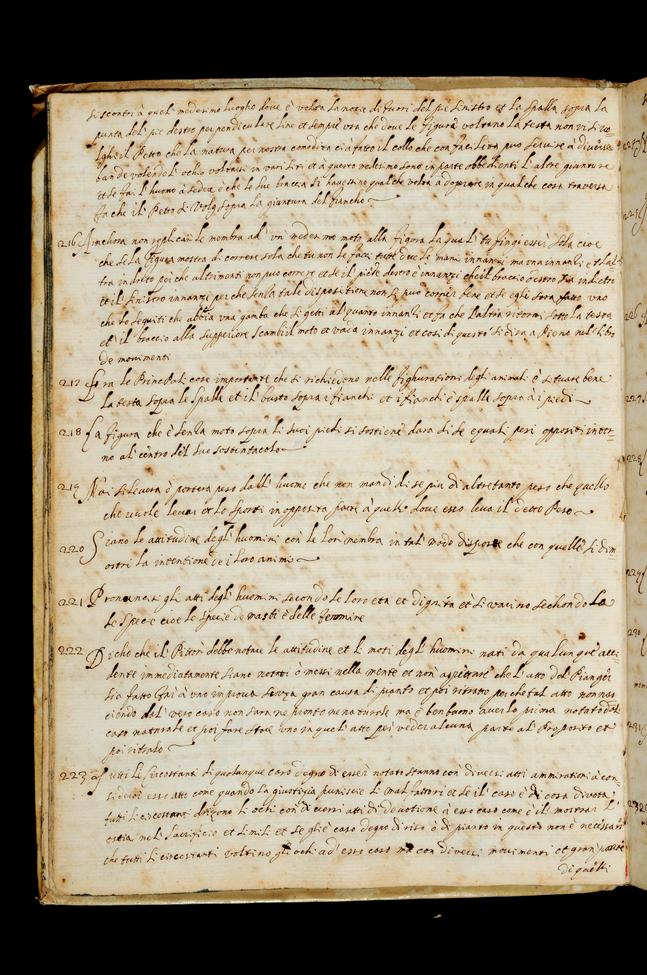 si scontri à quel medesimo luoghe dove è volta la noce di fuori del pie sinistro et la spalla sopra la
punta del pie destro per pendiculare line et sempre usa che dove le figure voltano la testa non vi si vo=
lghi il Petto che la nattura per nostra comodita ci à fatto il collo che con facilita puo servire à diverse
bande volendo l'ochio voltarsi in vari siti et à questo medesimo sono in parte obbedienti l'altre giunture
et se fai l'huomo à sedere è che le sue braccia si havessino qualche volta à doperare in qualche cosa traversa
fa che il Petto si volga sopra la giuntura del fiancho
216 Anchora non replicar le membra ad' un' medesimo moto alla figura la quel' tu fingi esser sola cioe
che se la figura mostra di correre sola che tu non le facci tutte due le mani innanzi ma una innanzi et l'al=
tra in dreto perche altrimenti non puo correre et se il piede destro è innanzi che il braccio destro sia indietro
et il sinistro innanzi perche senza tale dispositione non si puo correr bene et se egli sara fatto uno
che lo seguiti che abbia una gamba che si getti al quanto innanzi et fa che l'altra ritorni sotto la testa
et il braccio alla superiore scambi il moto et vaca innanzi et cosi di questo si dira à Pieno nel libro
de movimenti
217 Fra le Principali cose importante che si richiedono nelle fighurationi degli animali è situare bene
la testa sopra le spalle et il busto sopra i fianchi et i fianchi è spalle sopra à i piedi
218 La figura che è senza moto sopra li suoi piedi si sostiene dara di se equali pesi oppositi intor=
no al cêntro del suo sostentacolo
219 Mai si levera è portera peso dall' huomo che non mandi di se piu di altretanto peso che quello
che vuole levar et lo sporti in opposita parte à quella dove esso leva il detto Peso
220 Siano le attitudine degl' huomini con le lor membra in tal' modo disposte che con quelle si dim=
ostri la intentione de i loro animo
221 Pronuncisi gli atti degl' huomini secondo le loro eta et dignita et si variino sechondo la
le specie cioe le specie de masti è delle femmine
222 Dicho che il Pittor debbe notare le attitudine et li moti degl' huomini nati da qualunque acci=
dente immediatamente siano notati ò messi nella mente et non aspettare che l'atto del Pianger
sia fatto fare à uno in prova senza gran causa di pianto et poi ritrarlo perche tal' atto non nas=
ciendo dal' vero caso non sara ne pronto ne naturale ma è ben buono averlo prima notato dal
caso naturale et poi fare stare uno in quel' atto per veder alcuna parte al' Proposito et
poi ritralo
223 Tutti li circostanti di qualunque caso degno di esser notato stanno con' diversi atti ammirativi à con=
siderare esso atto come quando la giustitia punisce li mal' fattori et se il' caso è' di cosa divota
tutti li circostanti drizzono li ochi con' diversi atti di devotione à esso caso come è il' mostrar l'
ostia nel' Sacrificio et simili et se gli è' caso degno di riso ò di pianto in questo non è necessari
che tutti li circostanti voltino gli ochi ad' esso caso ma con diversi movimenti et gran' parte
di quelli